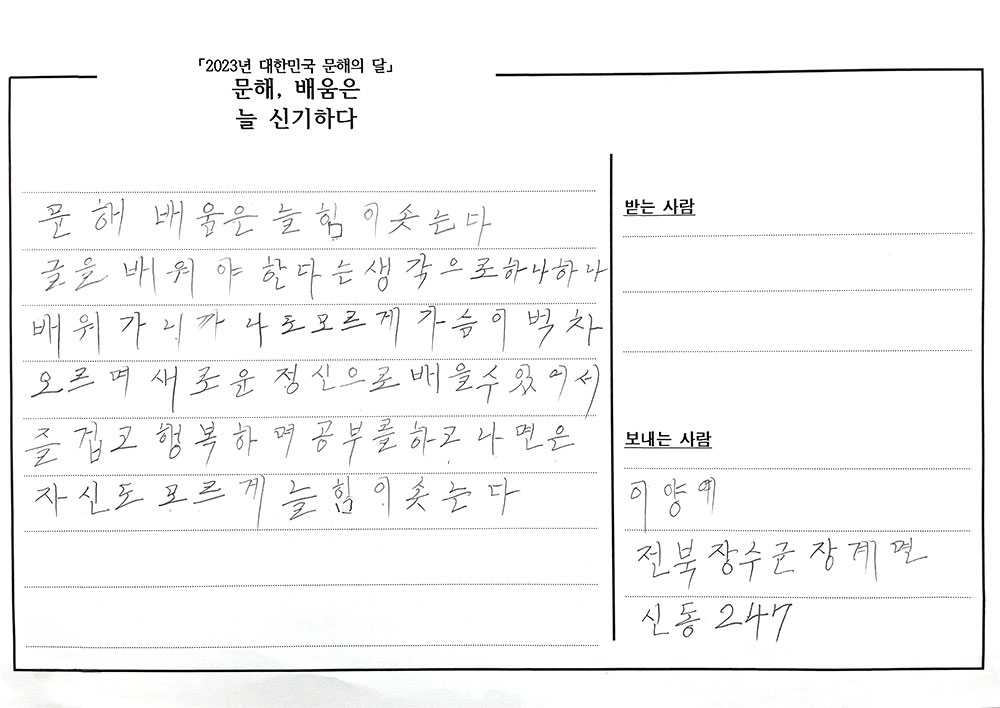 「2023년 대한민국 문해의 달」
문해, 배움은
늘 신기하다
문해 배움은 늘 힘이 솟는다
글을 배워야 한다는 생각으로 하나하나
배워가니까 나도모르게 가슴이 벅차
오르며 새로운 정신으로 배울수 있어서
즐겁고 행복하며 공부를하고 나면은
자신도 모르게 늘 힘이 솟는다
받는 사람
보내는 사람
이양예
전북 장수군 장계면
신동 247